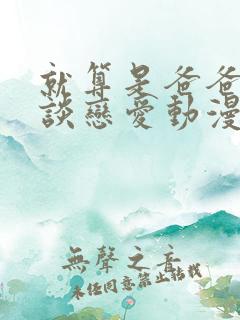 就算是爸爸
談戀愛動漫
無聲之音
未經同意禁止轉載